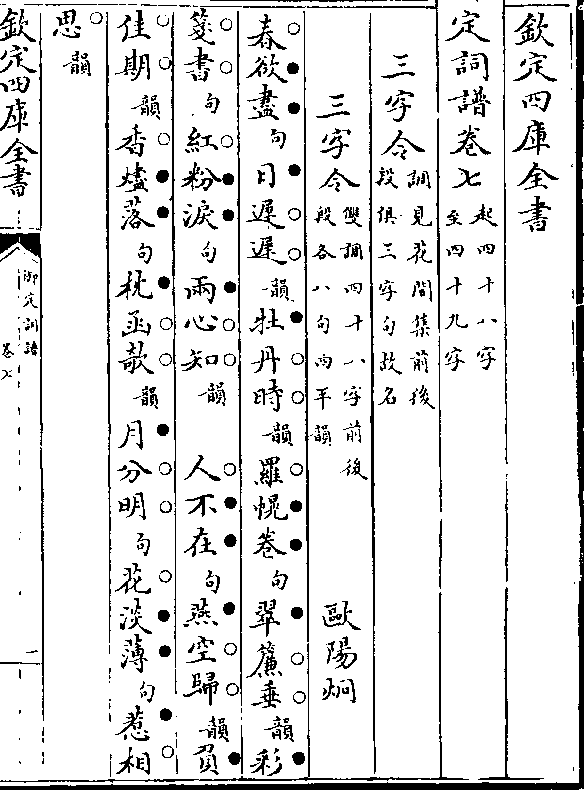 欽定四庫全書
定詞譜卷七 起四十八字
至四十九字
三字令 調見花間集前後
段俱三字句故名
三字令 雙調四十八字前後
段各八句両平韻 歐陽炯
春欲盡句日遲遲韻牡丹時韻羅幌卷句翠簾垂韻彩
箋書句紅粉淚句兩心知韻 人不在句燕空歸韻負
佳期韻香燼落句枕函欹韻月分明句花淡薄句惹相
思韻
欽定四庫全書
御定詞譜
卷七
一